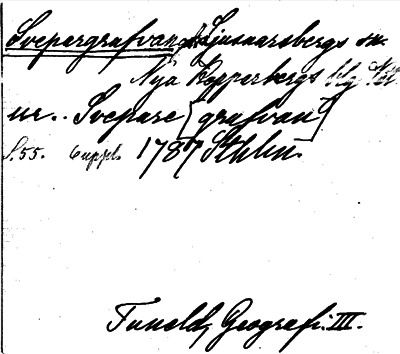 Svepargrufvan, Ljusnarsbergs sn.
Nya Kopparbergs
ur. Svepare [grufvan]
S. 55. 6 uppl. 1787 Sthlm.
Tuneld, Geografi. III.